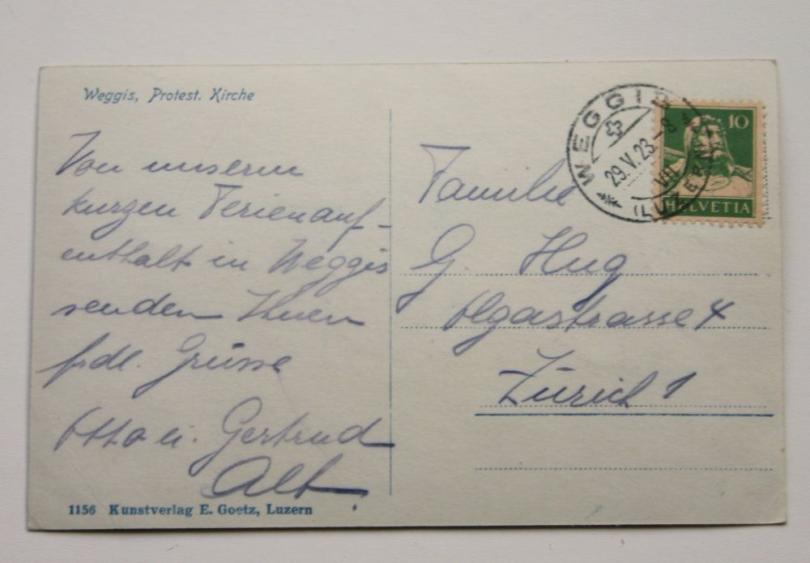 Weggis, Protest. Kirche
Von unserm
kurzen Ferienauf-
enthalt in Weggis
senden Ihnen
frdl. Grüsse
Otto u. Gertrud
Alt.
1156 Kunstverlag E. Goetz, Luzern
WEGGIS
29.V.23.-8
VIII
(LUZERN)
10
HELVETIA
Familie
G. Hug
Olgastrasse 4
Zürich 1